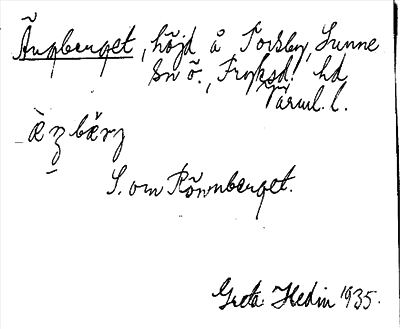 Ängberget, höjd å Torsby, Sunne
sn ö., Fryksd. hd
Värml. l.
S. om Rönnberget.
Greta Hedin 1935.